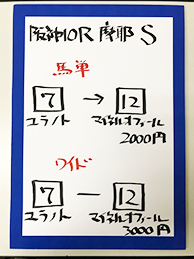 阪神10R 摩耶S
馬単
7 → 12
ユラノト マイネルオフィール
2000円
ワイド
7 — 12
ユラノト マイネルオフィール
3000円